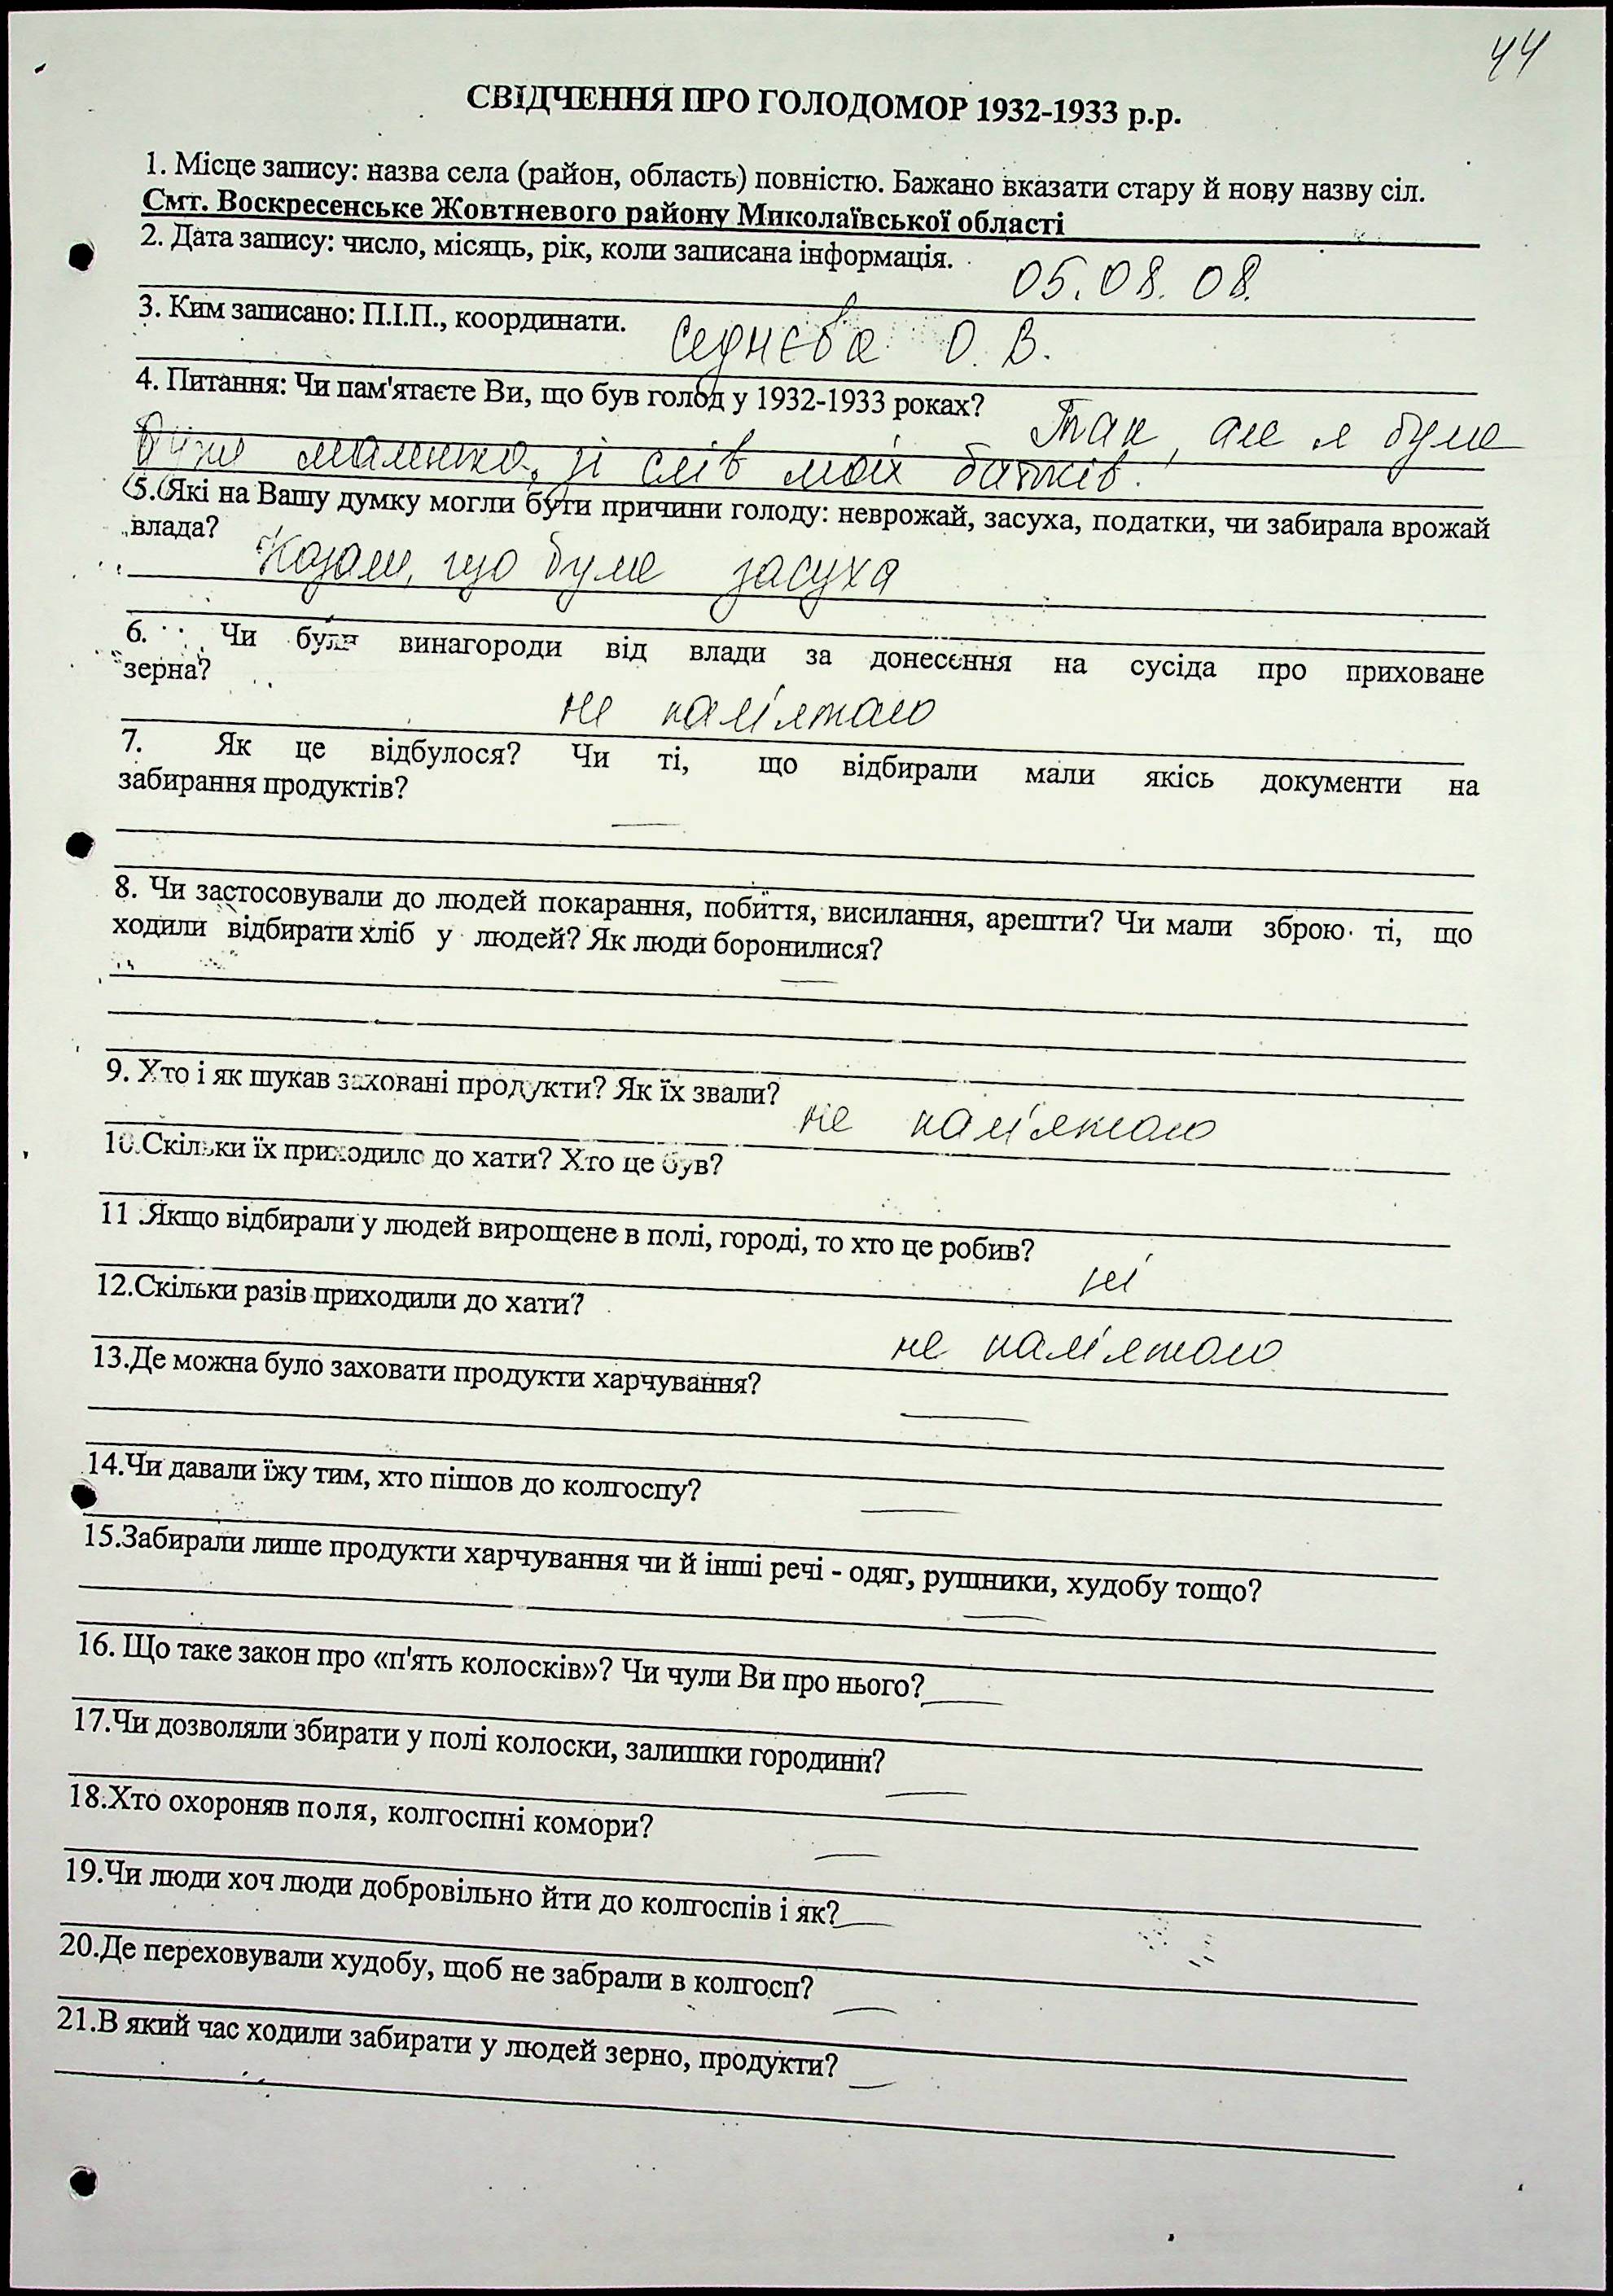 44
СВІДЧЕННЯ ПРО ГОЛОДОМОР 1932-1933 р.р.
1. Місце запису: назва села (район, область) повністю. Бажано вказати стару й нову назву сіл.
Смт. Воскресенське Жовтневого району Миколаївської області
2. Дата запису: число, місяць, рік, коли записана інформація.
05.08.08.
3. Ким записано: П.І.П., координати.
Седнєва О. В.
4. Питання: Чи пам'ятаєте Ви, що був голод у 1932-1933 роках? Так, але я була
дуже маленька, зі слів моїх батьків.
5. Які на Вашу думку могли бути причини голоду: неврожай, засуха, податки, чи забирала врожай
влада?
Казали, що була засуха
6. Чи були винагороди від влади за донесення на сусіда про приховане
зерна?
не пам'ятаю
7. Як це відбулося? Чи ті, що відбирали мали якісь документи на
забирання продуктів?
—
8. Чи застосовували до людей покарання, побиття, висилання, арешти? Чи мали зброю ті, що
ходили відбирати хліб у людей? Як люди боронилися?
—
9. Хто і як шукав заховані продукти? Як їх звали?
не пам'ятаю
10.Скільки їх приходило до хати? Хто це був?
11 .Якщо відбирали у людей вирощене в полі, городі, то хто це робив?
ні
12.Скільки разів приходили до хати?
не пам'ятаю
13.Де можна було заховати продукти харчування?
—
14.Чи давали їжу тим, хто пішов до колгоспу?
—
15.Забирали лише продукти харчування чи й інші речі - одяг, рушники, худобу тощо?
—
16. Що таке закон про «п'ять колосків»? Чи чули Ви про нього? —
17.Чи дозволяли збирати у полі колоски, залишки городини?
—
18.Хто охороняв поля, колгоспні комори?
—
19.Чи люди хоч люди добровільно йти до колгоспів і як? —
20.Де переховували худобу, щоб не забрали в колгосп?
—
21.В який час ходили забирати у людей зерно, продукти? —